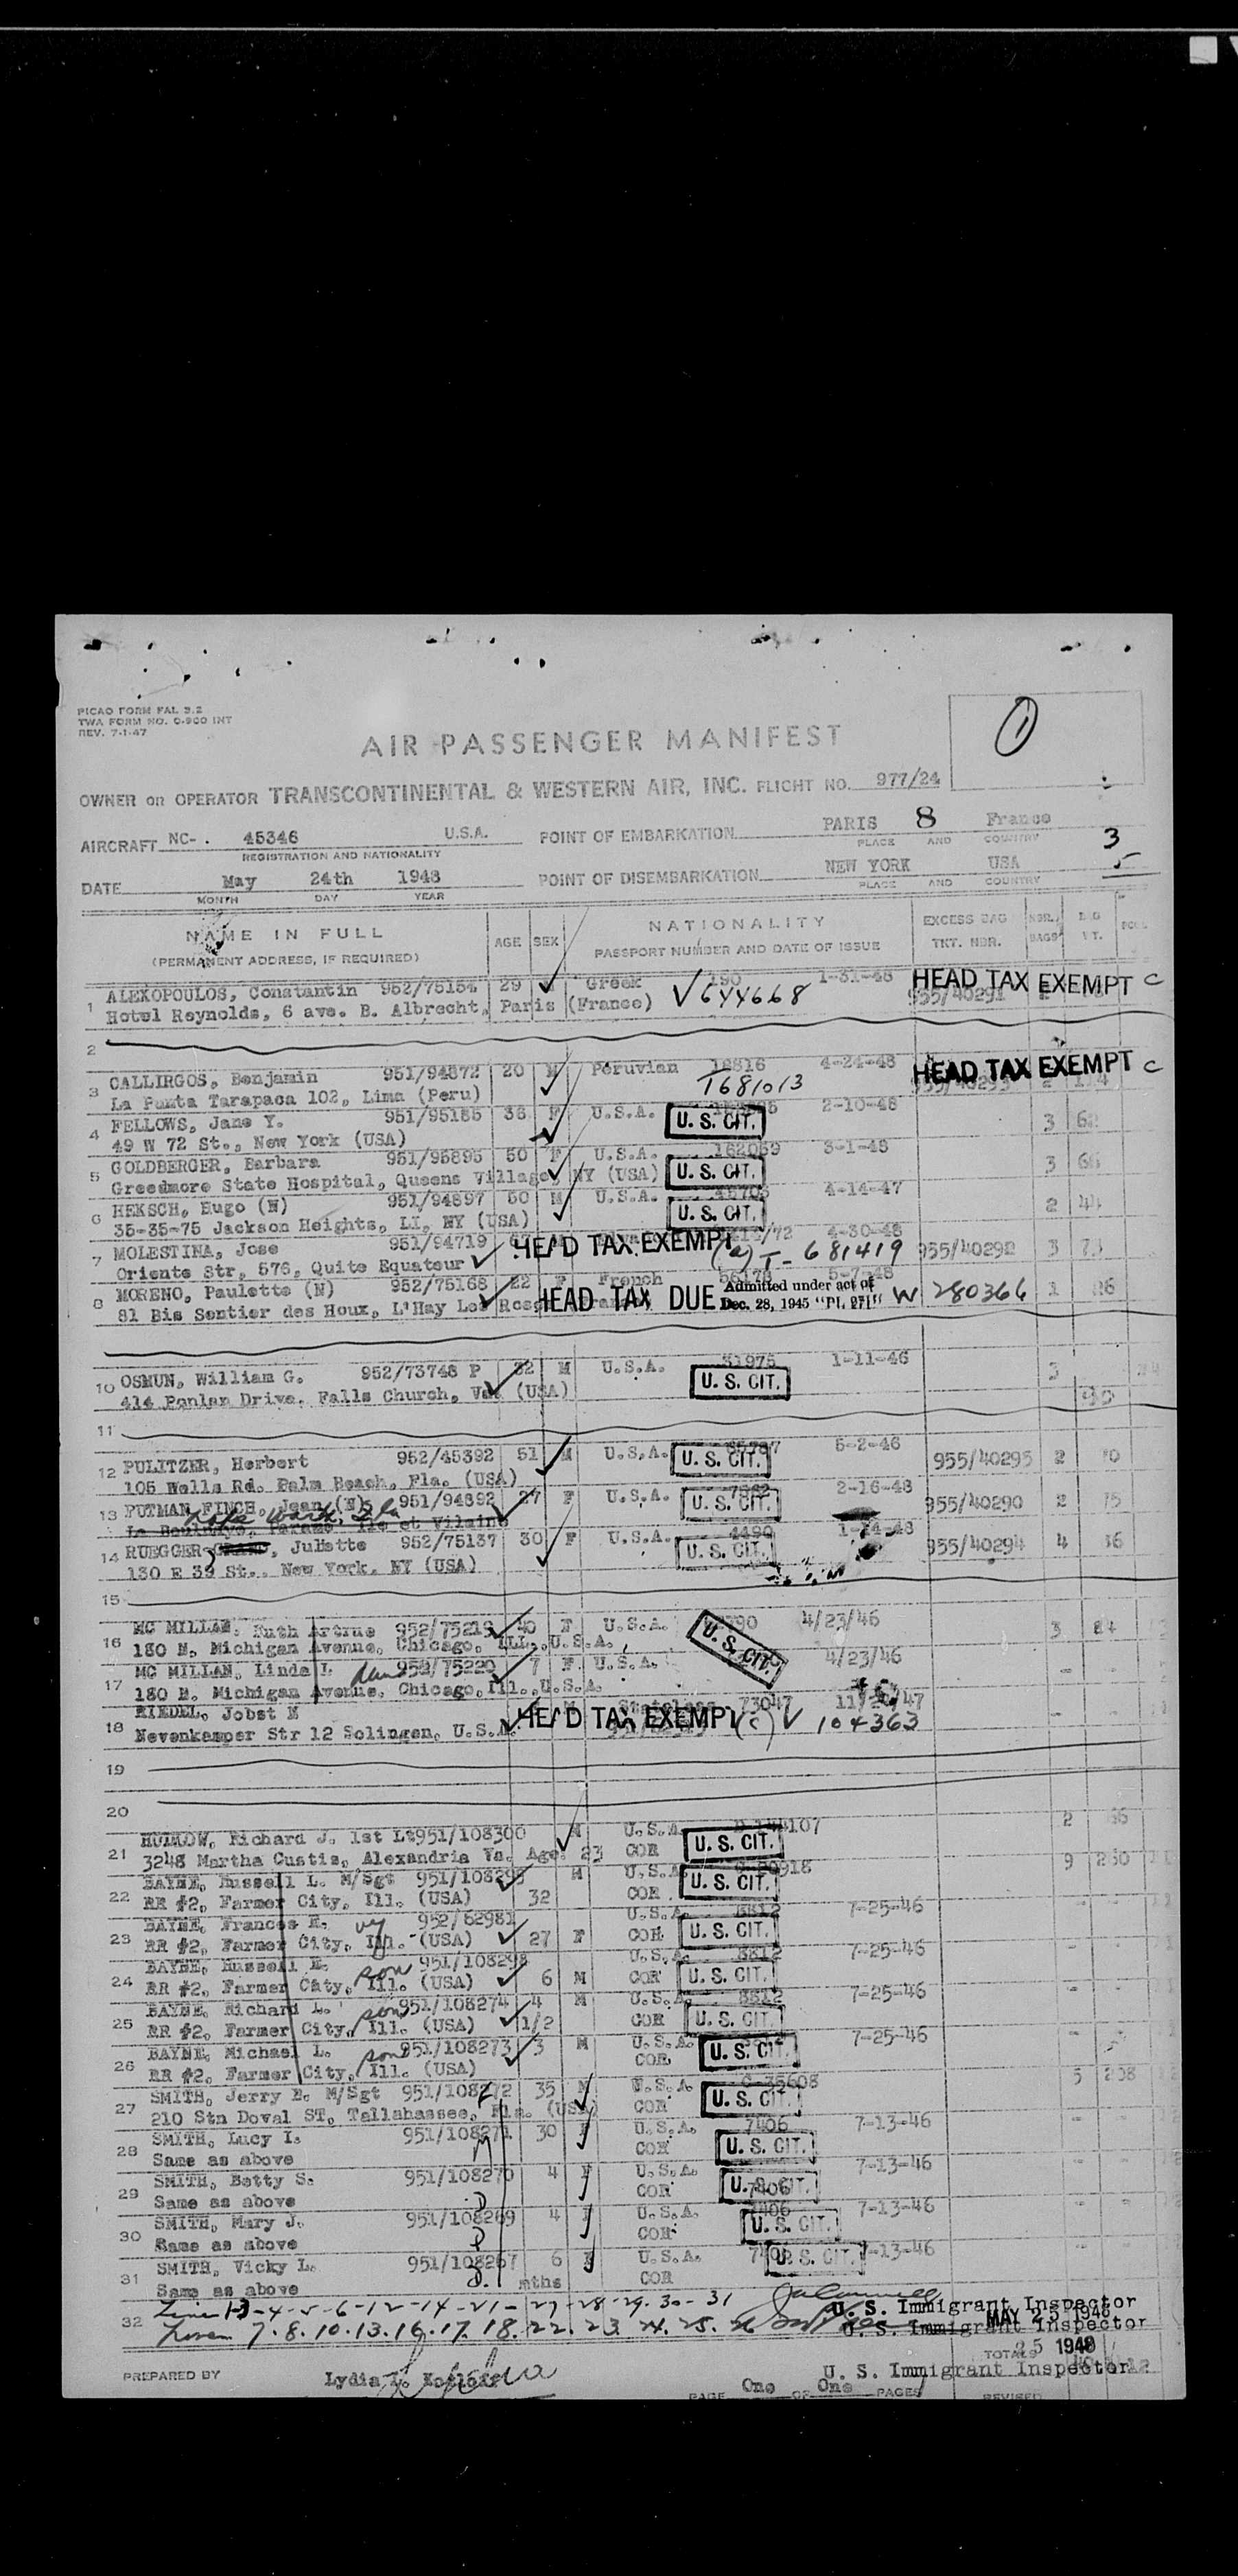 PICAO FORM FAL 3.2
TWA FORM NO. O-900 INT
REV. 7-1-47
AIR PASSENGER MANIFEST
OWNER OR OPERATOR TRANSCONTINENTAL & WESTERN AIR, INC. FLIGHT NO. 977/24
AIRCRAFT NC- . 45346 U.S.A. POINT OF EMBARKATION PARIS 8 France
REGISTRATION AND NATIONALITY PLACE AND COUNTRY 3
DATE May 24th 1948 POINT OF DISEMBARKATION NEW YORK USA
MONTH DAY YEAR PLACE AND COUNTRY
NAME IN FULL AGE SEX NATIONALITY EXCESS BAG NBR.
(PERMANENT ADDRESS, IF REQUIRED) PASSPORT NUMBER AND DATE OF ISSUE TKT. NBR. BAGS WT.
1 ALEXOPOULOS, Constantin 952/75154 29 Greek 190 1-31-48 HEAD TAX EXEMPT C
Hotel Reynolds, 6 ave. B. Albrecht, Paris (France) 644668 955/40291
2
3 CALLIRGOS, Benjamin 951/94872 20 M Peruvian 12816 4-24-48 HEAD TAX EXEMPT C
La Punta Tarapaca 102, Lima (Peru) T681013
4 FELLOWS, Jane Y. 951/95185 36 F U.S.A. 2-10-48
49 W 72 St., New York (USA) U. S. CIT. 3 62
5 GOLDBERGER, Barbara 951/95895 50 F U.S.A. 162059 3-1-48
Greedmore State Hospital, Queens Village, NY (USA) U. S. CIT. 3 66
6 HEKSCH, Hugo (N) 951/94897 50 M U.S.A. 4-14-47
35-35-75 Jackson Heights, LI, NY (USA) U. S. CIT. 2 44
7 MOLESTINA, Jose 951/94719 HEAD TAX EXEMPT 4-30-48
Oriente Str, 576, Quite Equateur (a) T- 681419 955/40292 3
8 MORENO, Paulette (N) 952/75168 22 F French 5-7-48
81 Bis Sentier des Houx, L'Hay Les HEAD TAX DUE Admitted under act of Dec. 28, 1945 "PL 271" W 280366 1 26
10 OSMUN, William G. 952/73748 P 32 M U.S.A. 31975 1-11-46
U. S. CIT. 3
Drive, Falls Church, Va. (USA)
11
12 PULITZER, Herbert 952/45392 51 M U.S.A. 5-2-46
105 Wells Rd. Palm Beach, Fla. (USA) U. S. CIT. 955/40295 2
13 PUTMAN FINCH, Jean (N) 951/94892 27 F U.S.A. 2-16-48
Lake Worth, Fla U. S. CIT. 955/40290 2 75
14 RUEGGER , Juliette 952/75137 30 F U.S.A. 4490
130 E 39 St., New York, NY (USA) U. S. CIT. 955/40294 4 36
15
16 MC MILLAN, Ruth 952/75219 40 F U.S.A. 4/23/46
180 N. Michigan Avenue, Chicago, ILL., U.S.A. U. S. CIT. 3
17 MC MILLAN, Linda L dau 952/75220 7 F U.S.A. 4/23/46
180 N. Michigan Avenue, Chicago, Ill., U.S.A.
18 RIEDEL, Jobst M 73047
Nevenkamper Str 12 Solingen, U.S.A. HEAD TAX EXEMPT (c) 104363
19
20
21 Richard J. 1st Lt 951/108300 M U.S.A. 2
3248 Martha Custis, Alexandria Va. Age. 23 COR U. S. CIT.
22 BAYNE, Russell L. M/Sgt 951/108295 M U.S.A 9 230
RR #2, Farmer City, Ill. (USA) 32 COR U. S. CIT.
23 BAYNE, Frances E. 952/62981 U.S.A. 8812 7-25-46
RR #2, Farmer City, Ill. (USA) 27 F COR U. S. CIT.
24 BAYNE, Russell E. son 951/108298 U.S.A. 8812 7-25-46
RR #2, Farmer City, Ill. (USA) 6 M COR U. S. CIT.
25 BAYNE, Richard L. son 951/108274 4 M U.S.A. 8812 7-25-46
RR #2, Farmer City, Ill. (USA) 1/2 COR U. S. CIT.
26 BAYNE, Michael L. son 951/108273 3 M U.S.A. 7-25-46
RR #2, Farmer City, Ill. (USA) COR U. S. CIT.
27 SMITH, Jerry E. M/Sgt 951/108272 35 M U.S.A C-35608 5 208
210 Stn Doval ST, Tallahassee, Fla. (USA) COR U. S. CIT.
28 SMITH, Lucy I. 951/108271 30 F U.S.A. 7406 7-13-46
Same as above COR U. S. CIT.
29 SMITH, Betty S. 951/108270 4 F U.S.A. 7406 7-13-46
Same as above COR U. S. CIT.
30 SMITH, Mary J. 951/108269 4 F U.S.A. 7406 7-13-46
Same as above COR U. S. CIT.
31 SMITH, Vicky L. 951/108267 6 F U.S.A. 7-13-46
Same as above mths COR U. S. CIT.
32 Line 1-3-4-5-6-12-14-21-27-28-29-30-31 U. S. Immigrant Inspector
7. 8. 10. 13. 16. 17. 18. 22. 23. 24. 25. 26 MAY 25 1948
U. S. Immigrant Inspector
TOTALS 25 1948
PREPARED BY Lydia U. S. Immigrant Inspector
PAGE One OF One PAGES REVISED